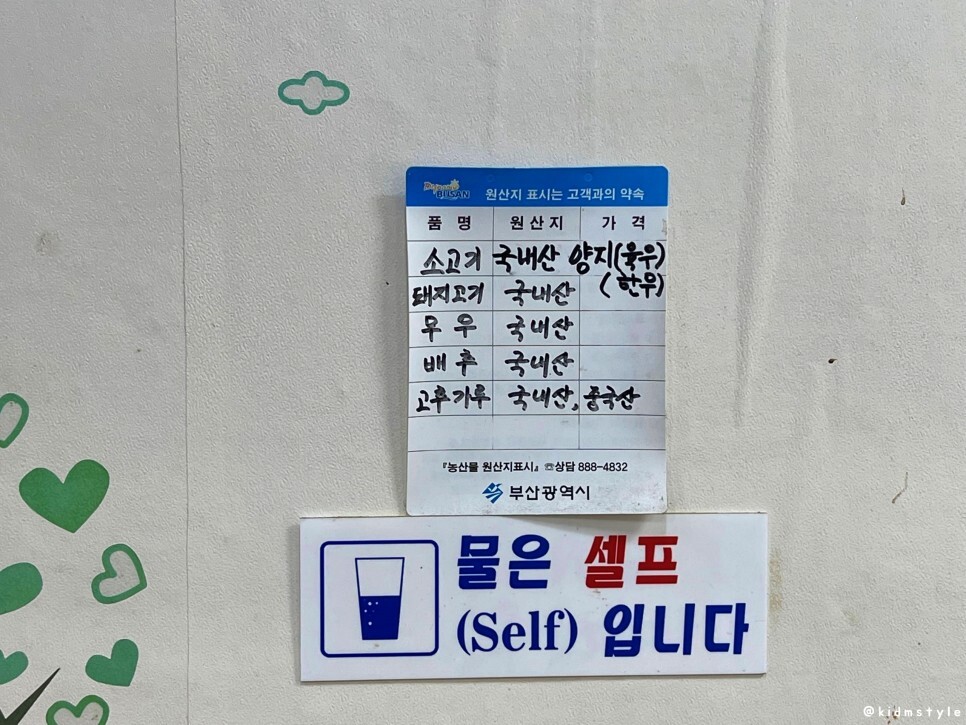 Dynamic BUSAN 원산지 표시는 고객과의 약속
품 명 원산지 가 격
소고기 국내산 양지(육우)
(한우)
돼지고기 국내산
무우 국내산
배추 국내산
고추가루 국내산, 중국산
『농산물 원산지표시』 ☏상담 888-4832
부산광역시
물은 셀프
(Self) 입니다
@kidmstyle